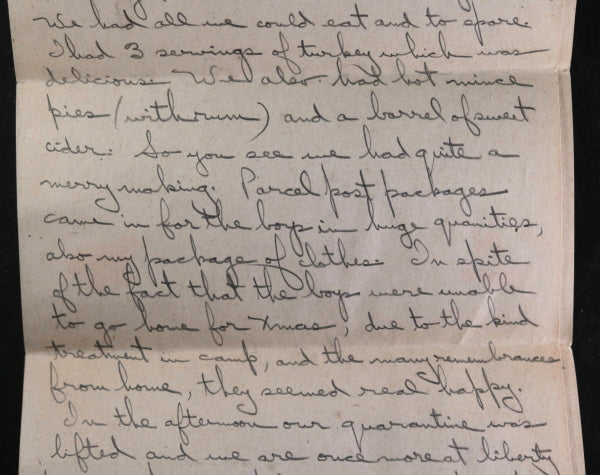 We had all we could eat and to spare.
I had 3 servings of turkey which was
delicious. We also had hot mince
pies (with rum) and a barrel of sweet
cider. So you see we had quite a
merry making. Parcel post packages
came in for the boys in huge quanities,
also my package of clothes. In spite
of the fact that the boys were unable
to go home for Xmas, due to the kind
treatment in camp, and the many remembrances
from home, they seemed real happy.
In the afternoon our quarantine was
lifted and we are once more at liberty